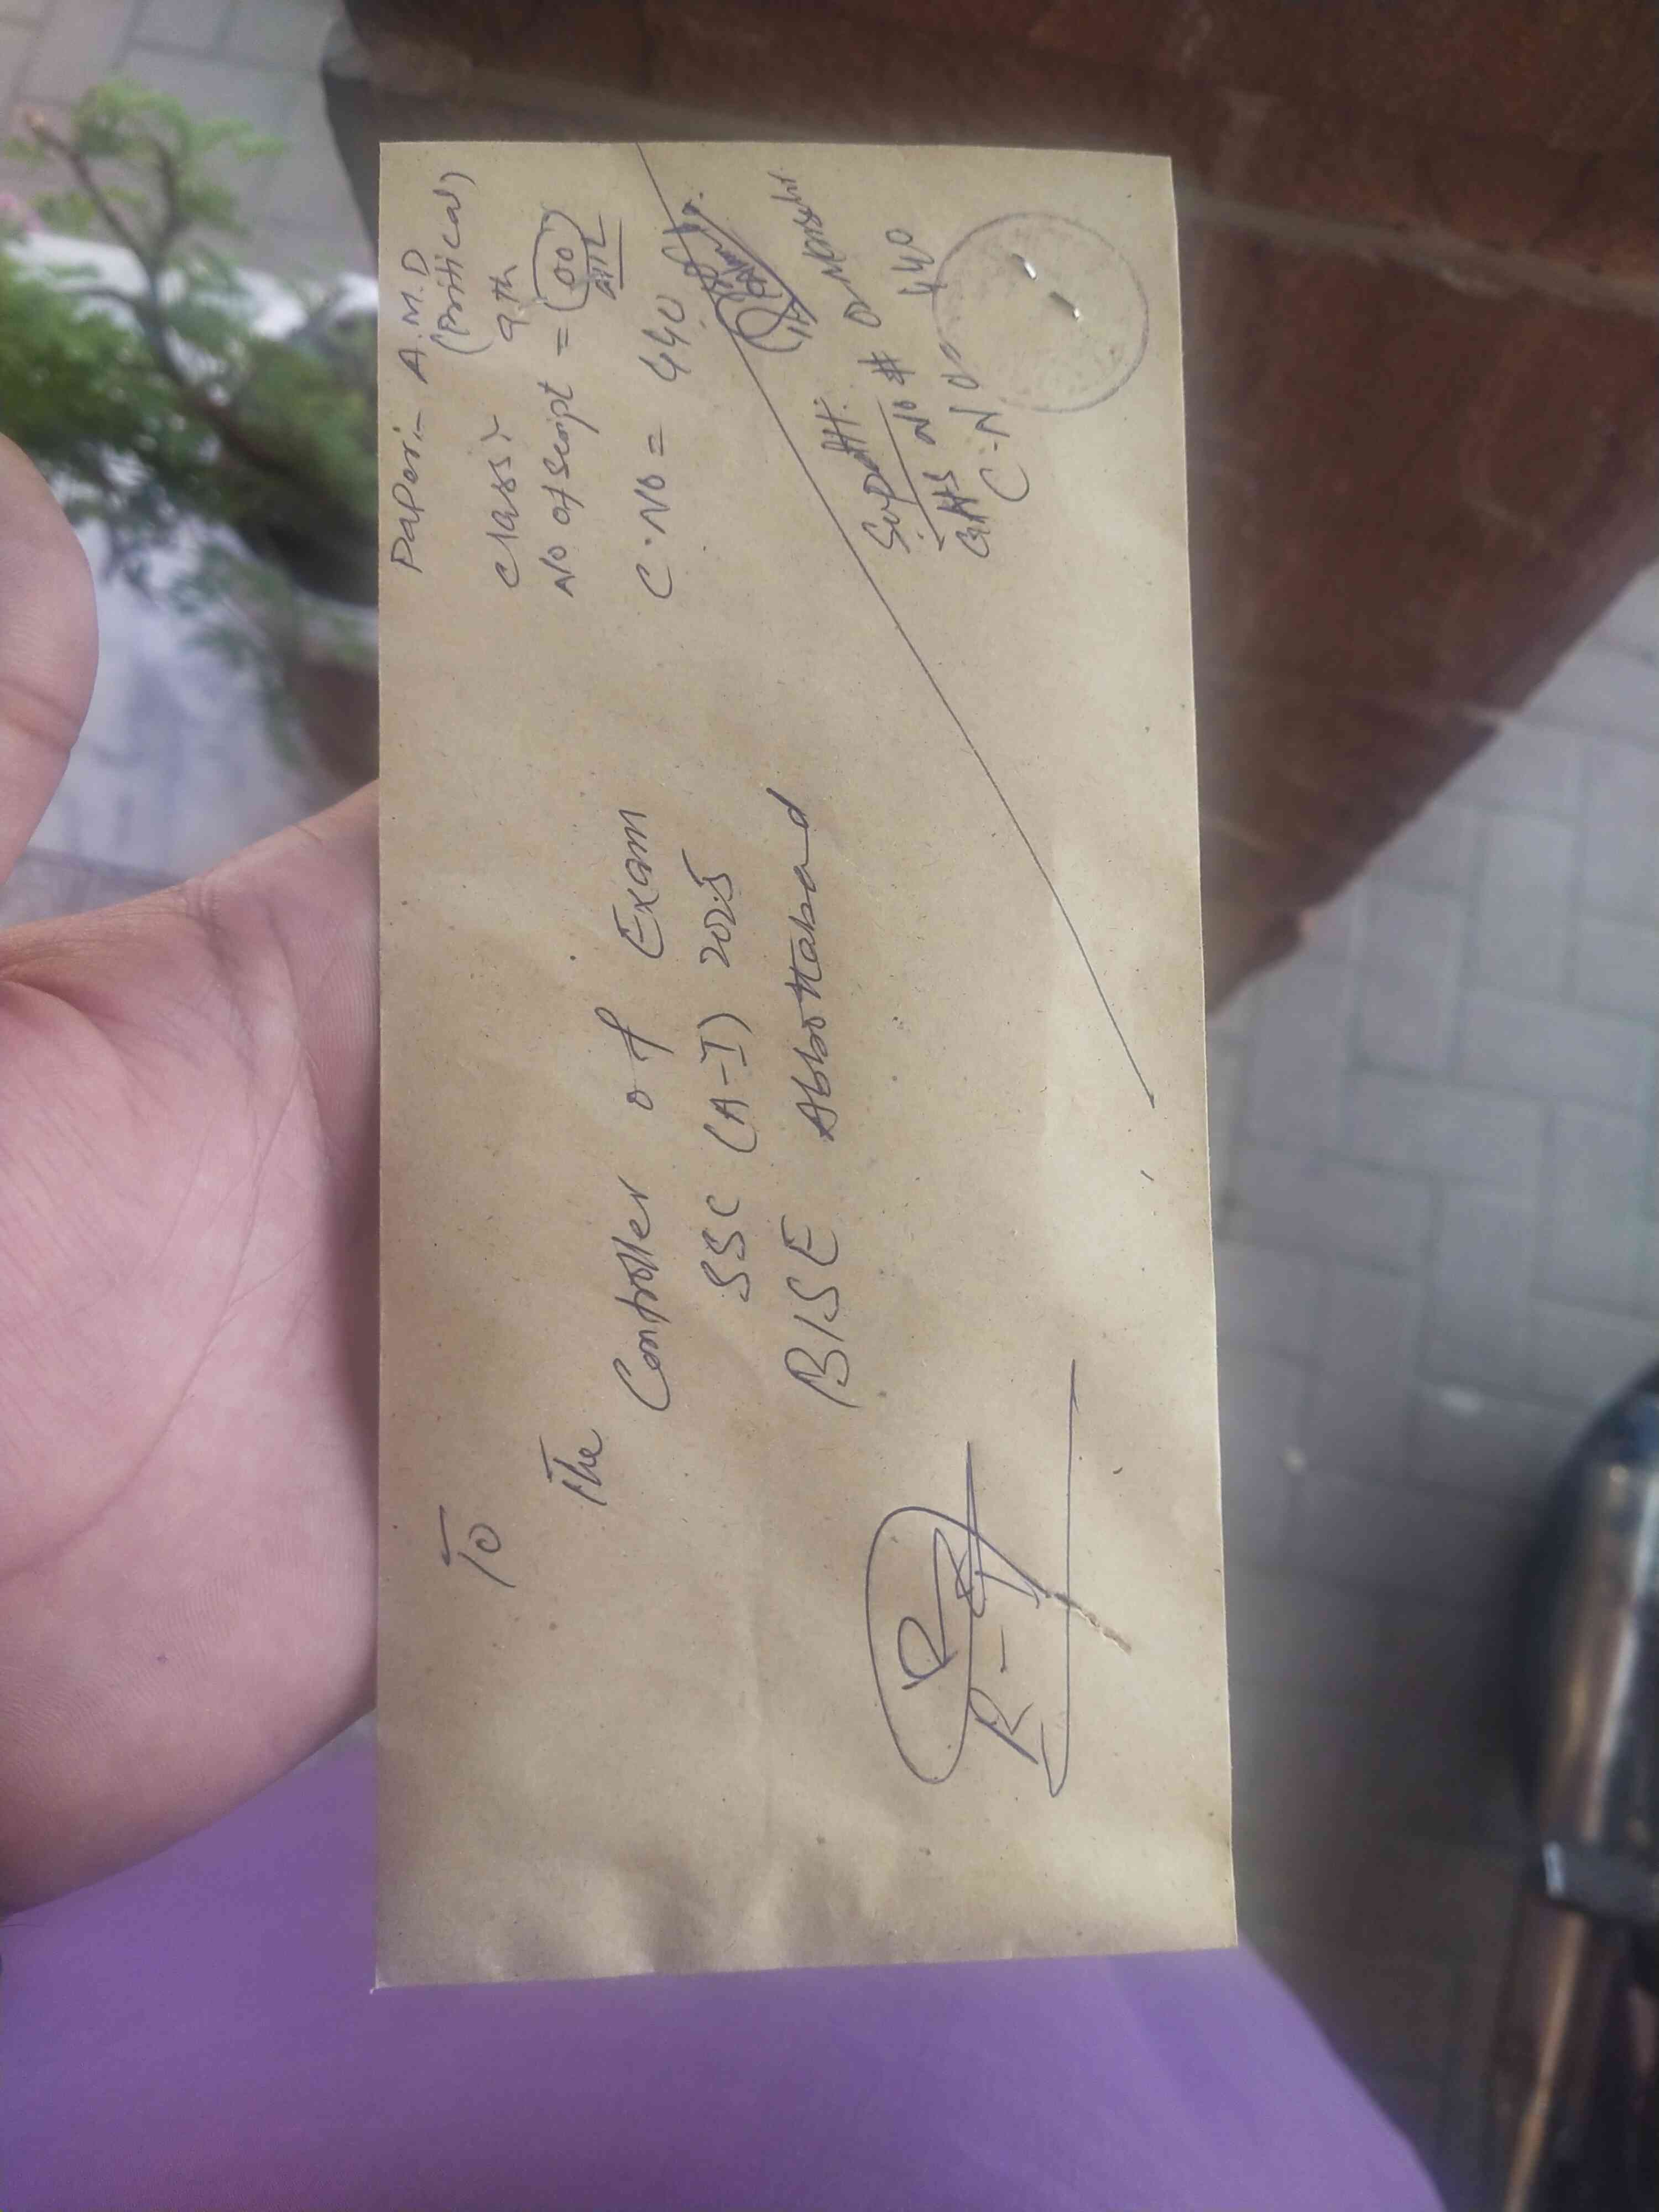 Paper:- A.M.D
(Pritical)
Class:- 9th
No of Script = (00)
NIL
C.No = 440
To
The
Controller of Exam
SSC (A-I) 2025
BISE Abbottabad
Supdtt:
GHS No #
C.No 440
R-